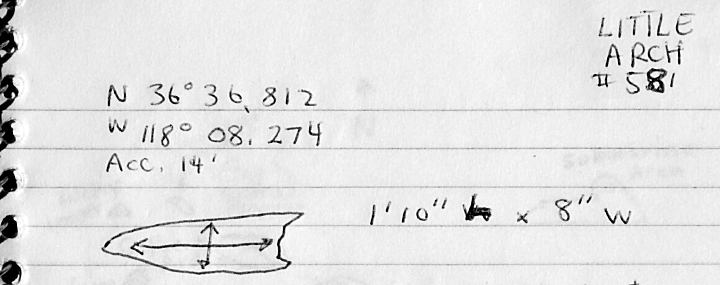 LITTLE
ARCH
# 581
N 36° 36.812
W 118° 08.274
Acc. 14'
1'10" x 8" W